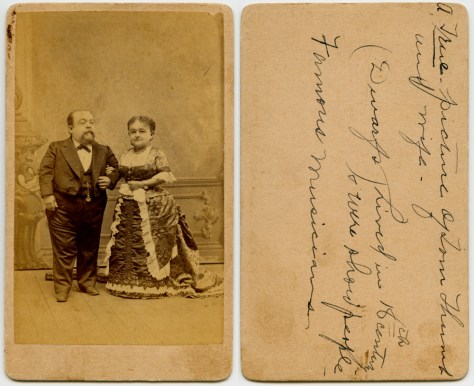 A True picture of Tom Thumb
and wife -
(Dwarfs) lived in 18th century
& were show people -
Famous Musicians